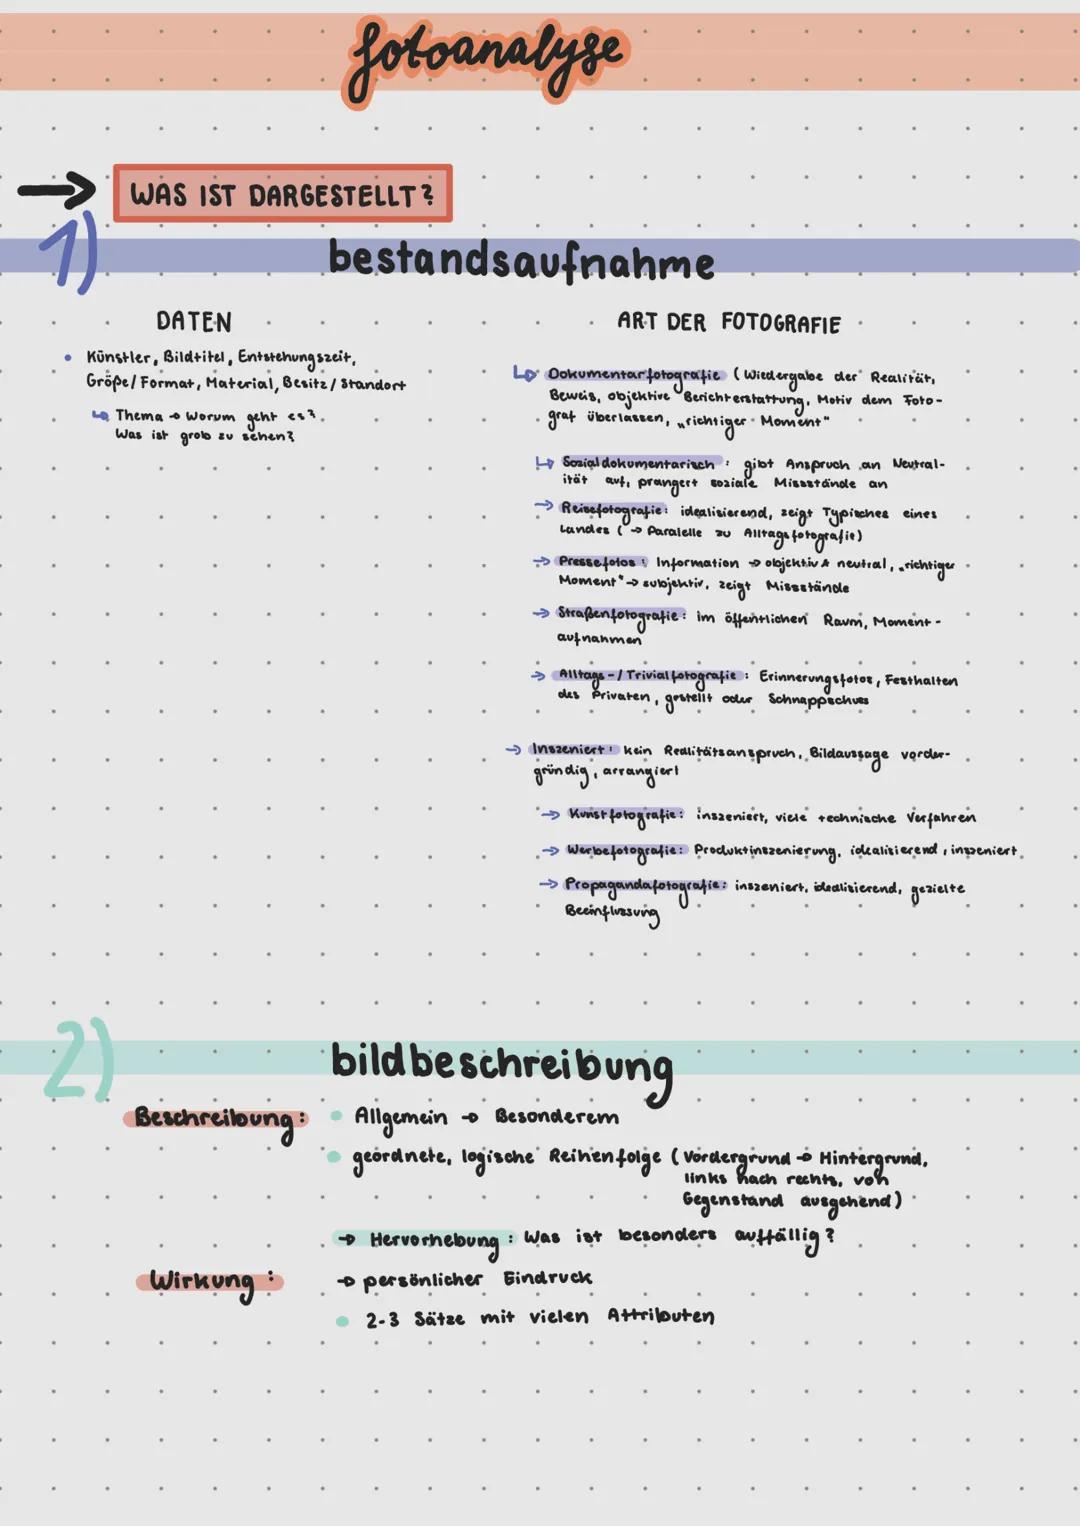 fotoanalyse
WAS IST DARGESTELLT?
1)
bestandsaufnahme
DATEN
• Künstler, Bildtitel, Entstehungszeit,
Größe/Format, Material, Besitz/Standort
↳ Thema → Worum geht es?
Was ist grob zu sehen?
ART DER FOTOGRAFIE
↳ Dokumentarfotografie (Wiedergabe der Realität,
Beweis, objektive Berichterstattung, Motiv dem Foto-
graf überlassen, „richtiger Moment"
↳ Sozialdokumentarisch: gibt Anspruch an Neutral-
ität auf, prangert soziale Missstände an
→ Reisefotografie: idealisierend, zeigt Typisches eines
Landes (→ Paralelle zu Alltagsfotografie)
→ Pressefotos: Information → objektiv & neutral, „richtiger
Moment" → subjektiv, zeigt Missstände
→ Straßenfotografie: im öffentlichen Raum, Moment-
aufnahmen
→ Alltags-/Trivialfotografie: Erinnerungsfotos, Festhalten
des Privaten, gestellt oder Schnappschuss
→ Inszeniert: kein Realitätsanspruch, Bildaussage vorder-
gründig, arrangiert
→ Kunstfotografie: inszeniert, viele technische Verfahren
→ Werbefotografie: Produktinszenierung, idealisierend, inszeniert
→ Propagandafotografie: inszeniert, idealisierend, gezielte
Beeinflussung
2)
bildbeschreibung
Beschreibung: • Allgemein → Besonderem
• geordnete, logische Reihenfolge (Vordergrund → Hintergrund,
links nach rechts, von
Gegenstand ausgehend)
→ Hervorhebung: Was ist besonders auffällig?
Wirkung: → persönlicher Eindruck
• 2-3 Sätze mit vielen Attributen